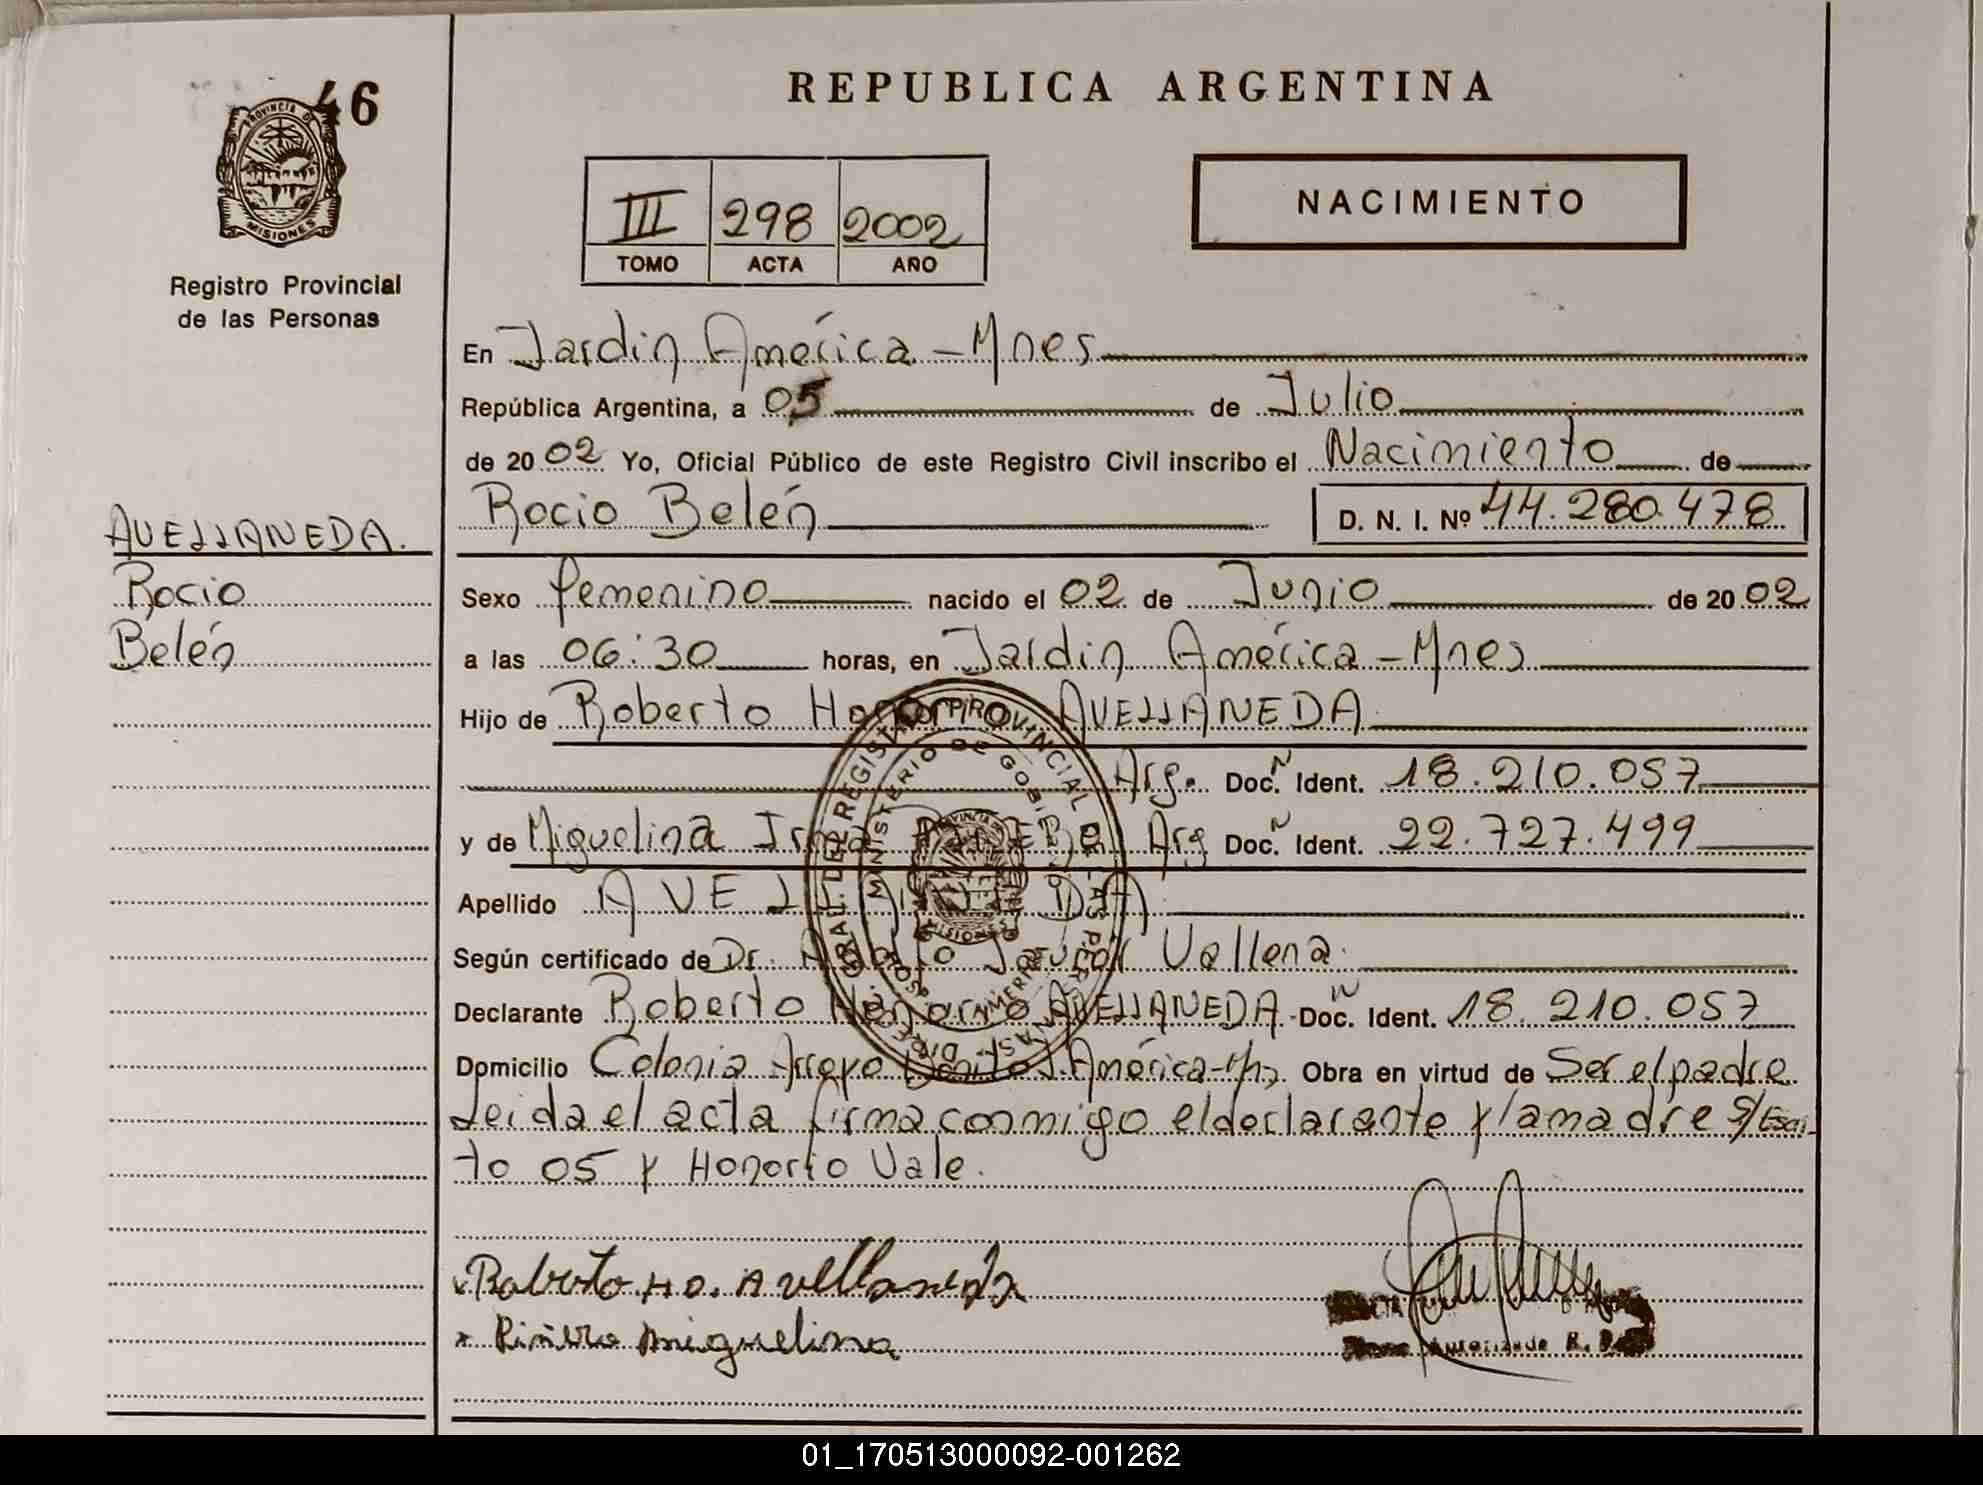 46
PROVINCIA DE
MISIONES
Registro Provincial
de las Personas
AVELLANEDA.
Rocio
Belén
REPUBLICA ARGENTINA
III 298 2002
TOMO ACTA AÑO
NACIMIENTO
En Jardin América - Mnes
República Argentina, a 05 de Julio
de 2002 Yo, Oficial Público de este Registro Civil inscribo el Nacimiento de
Rocio Belén D. N. I. Nº 44.280.478
Sexo femenino nacido el 02 de Junio de 2002
a las 06:30 horas, en Jardin América - Mnes
Hijo de Roberto AVELLANEDA
Arg. Doc. Nº Ident. 18.210.057
y de Miguelina Irma Arg Doc. Nº Ident. 22.727.499
Apellido AVELLANEDA
Según certificado de Dr. Vallena
Declarante Roberto Honorio AVELLANEDA Doc. Nº Ident. 18.210.057
Domicilio Colonia Arroyo J. América - Mnes Obra en virtud de Ser el padre
Leida el acta firma conmigo el declarante y la madre S/Escri
to 05 y Honorio Vale.
Roberto Ho. Avellaneda
Piñero Miguelina
Autorizado R. P.
01_170513000092-001262